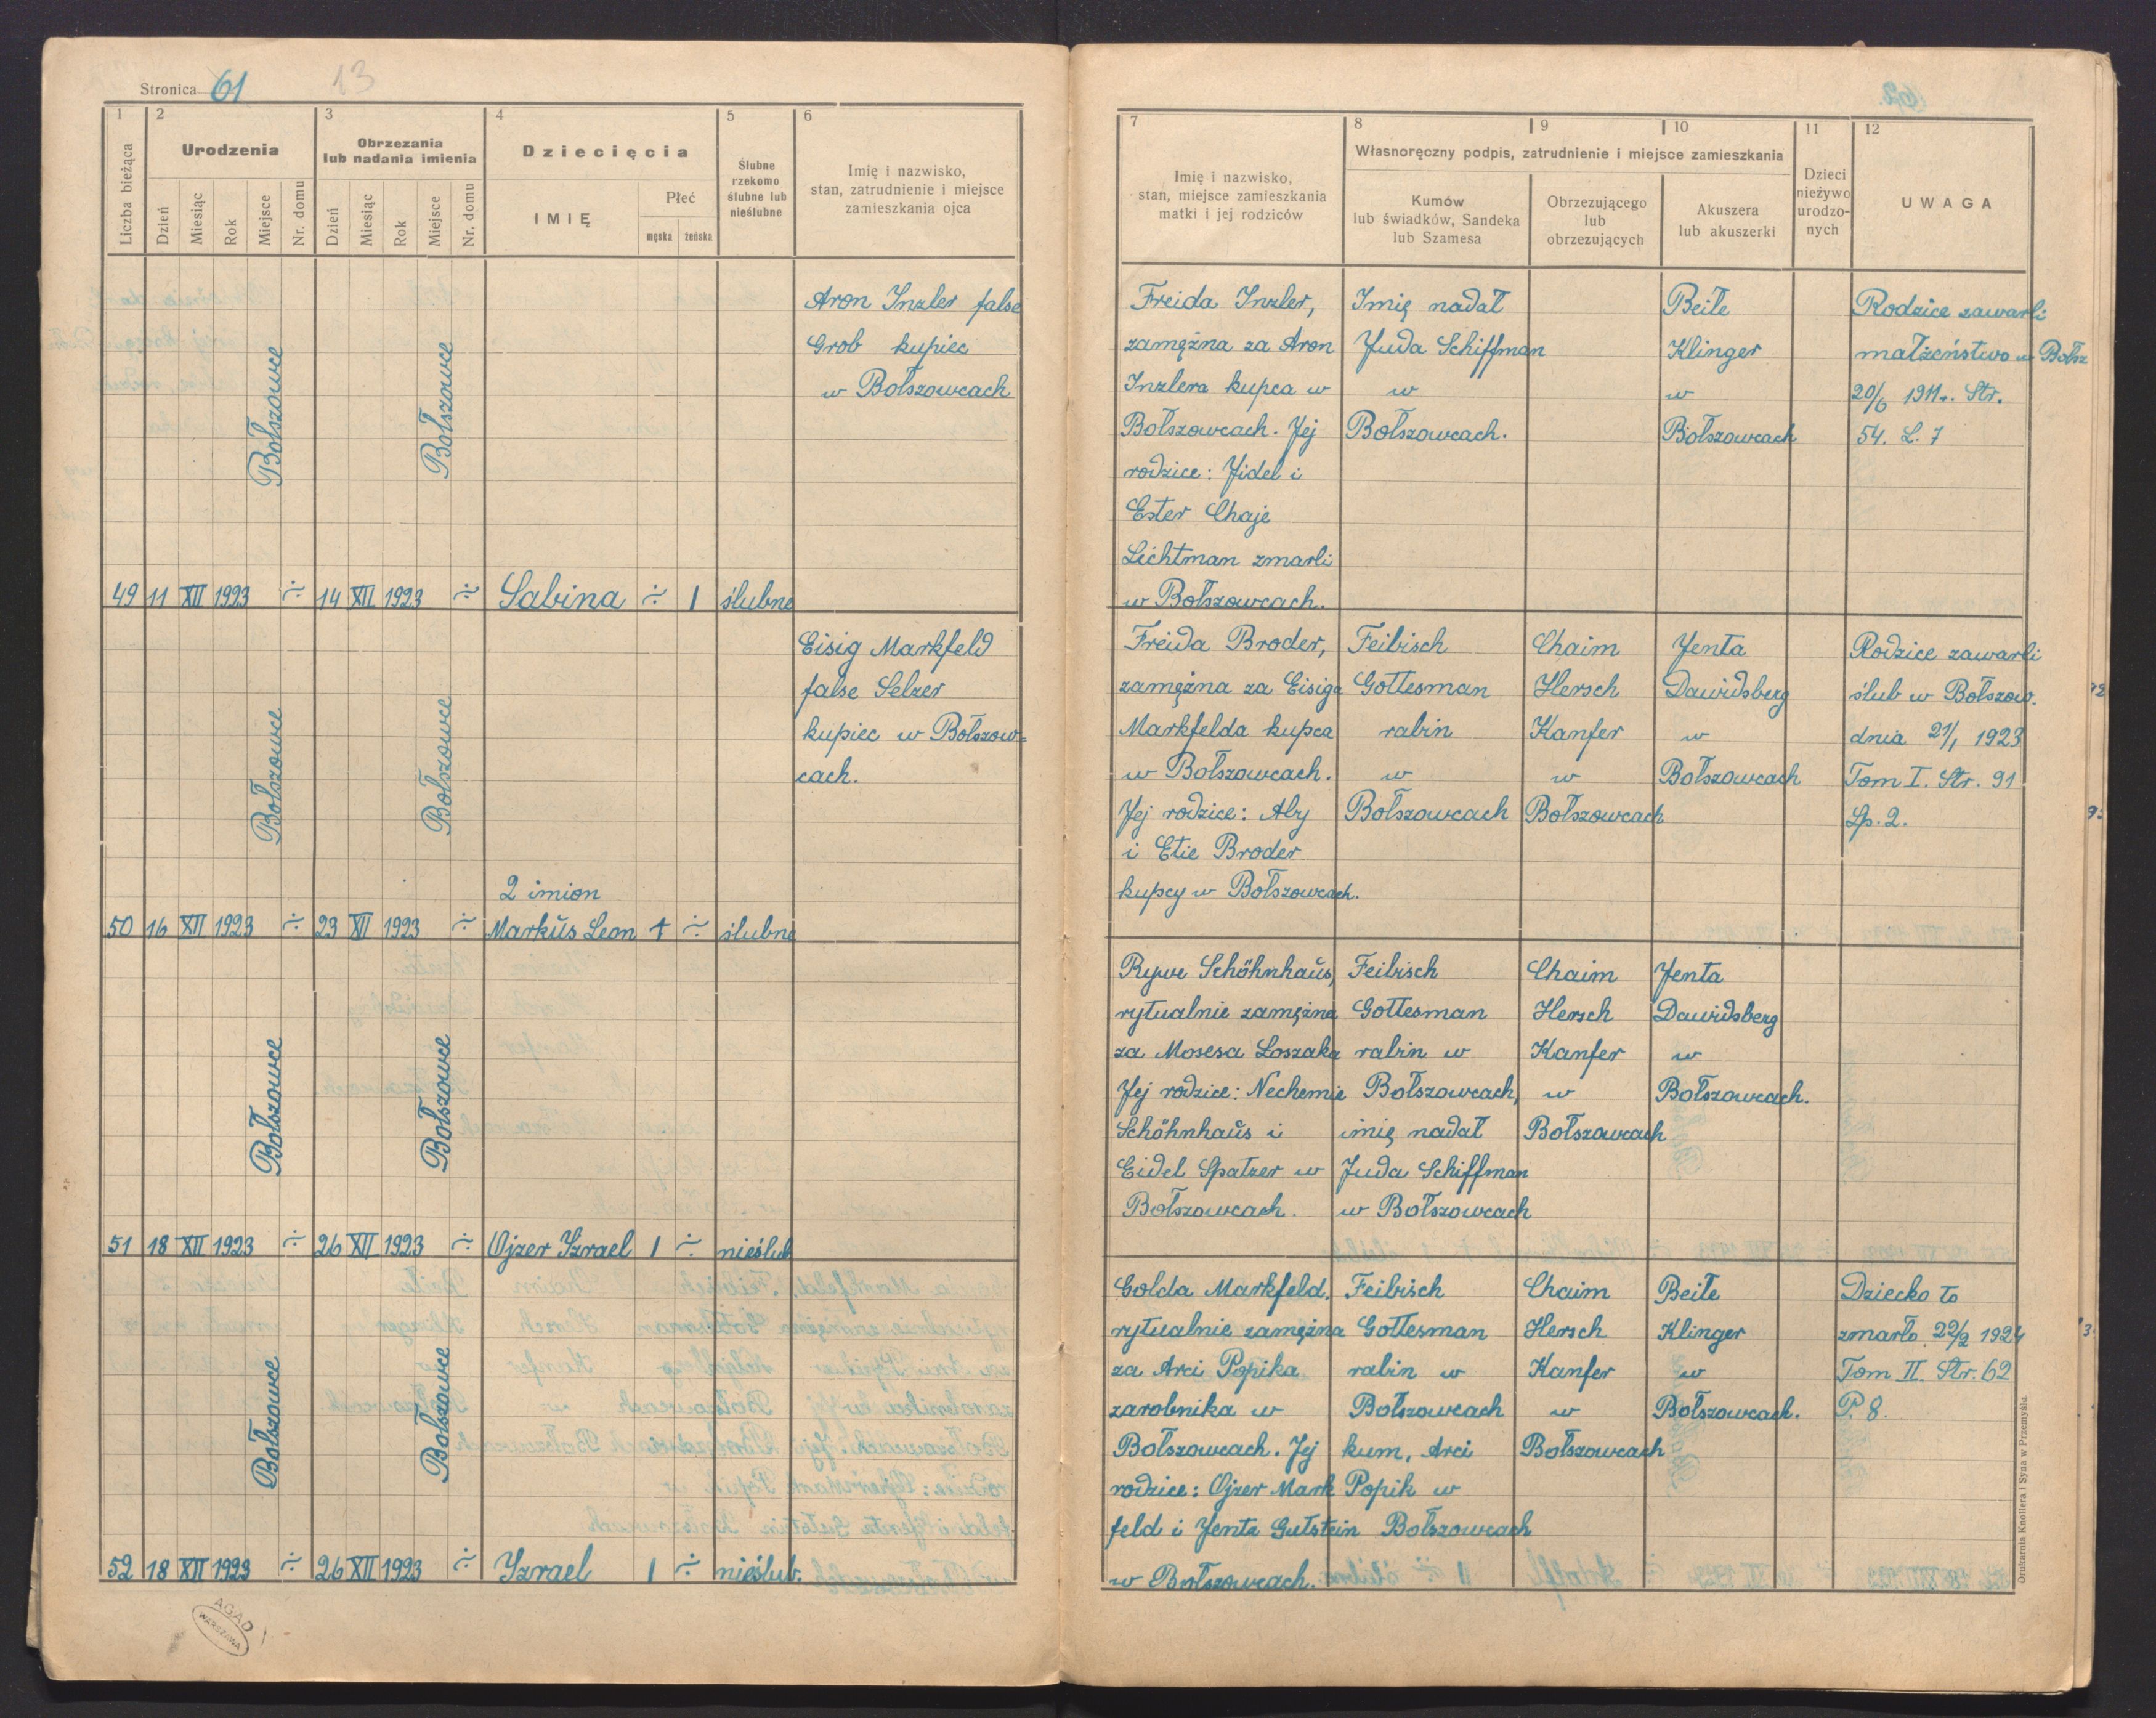 Stronica 61
13
1
2
3
4
5
6
Liczba bieżąca
Urodzenia
Obrzezania
lub nadania imienia
Dziecięcia
Ślubne
rzekomo
ślubne lub
nieślubne
Imię i nazwisko,
stan, zatrudnienie i miejsce
zamieszkania ojca
Dzień
Miesiąc
Rok
Miejsce
Nr. domu
Dzień
Miesiąc
Rok
Miejsce
Nr. domu
IMIĘ
Płeć
męska
żeńska
Bołszowce
Bołszowce
Aron Inzler false
Grob kupiec
w Bołszowcach
49 11 XII 1923 ÷ 14 XII 1923 ÷ Sabina ÷ 1 ślubne
Bołszowce
Bołszowce
Eisig Markfeld
false Selzer
kupiec w Bołszow=
cach.
2 imion
50 16 XII 1923 ÷ 23 XII 1923 ÷ Markŭs Leon 1 ÷ ślubne
Bołszowce
Bołszowce
51 18 XII 1923 ÷ 26 XII 1923 ÷ Ojzer Izrael 1 ÷ nieślub
Bołszowce
Bołszowce
52 18 XII 1923 ÷ 26 XII 1923 ÷ Izrael 1 ÷ nieślub.
AGAD
WARSZAWA
7
8
9
10
11
12
Imię i nazwisko,
stan, miejsce zamieszkania
matki i jej rodziców
Własnoręczny podpis, zatrudnienie i miejsce zamieszkania
Kumów
lub świadków, Sandeka
lub Szamesa
Obrzezującego
lub
obrzezujących
Akuszera
lub akuszerki
Dzieci
nieżywo
urodzo-
nych
UWAGA
Freida Inzler,
zamężna za Aron
Inzlera kupca w
Bołszowcach. Jej
rodzice: Jidel i
Ester Chaje
Lichtman zmarli
w Bołszowcach.
Imię nadał
Juda Schiffman
w
Bołszowcach.
Beile
Klinger
w
Bołszowcach
Rodzice zawarli
małżeństwo w Bołsz
20/6 1911r. Str.
54. L. 7
Freida Broder,
zamężna za Eisiga
Markfelda kupca
w Bołszowcach.
Jej rodzice: Aby
i Etie Broder
kupcy w Bołszowcach.
Feibisch
Gottesman
rabin
w
Bołszowcach
Chaim
Hersch
Kanfer
w
Bołszowcach
Jenta
Dawidsberg
w
Bołszowcach
Rodzice zawarli
ślub w Bołszow.
dnia 21/1 1923
Tom I. Str. 91
Lp. 2.
Rywe Schöhnhaŭs,
rytualnie zamężna
za Mosesa Loszaka
Jej rodzice: Nechemie
Schöhnhaŭs i
Eidel Spatzer w
Bołszowcach.
Feibisch
Gottesman
rabin w
Bołszowcach,
imię nadał
Juda Schiffman
w Bołszowcach
Chaim
Hersch
Kanfer
w
Bołszowcach
Jenta
Dawidsberg
w
Bołszowcach.
Golda Markfeld.
rytualnie zamężna
za Arci Popika
zarobnika w
Bołszowcach. Jej
rodzice: Ojzer Mark
feld i Jenta Gutstein
w Bołszowcach.
Feibisch
Gottesman
rabin w
Bołszowcach
kum, Arci
Popik w
Bołszowcach
Chaim
Hersch
Kanfer
w
Bołszowcach
Beile
Klinger
w
Bołszowcach.
Dziecko to
zmarło 22/2 1924
Tom II. Str. 62
P. 8.
Drukarnia Knollera i Syna w Przemyślu.